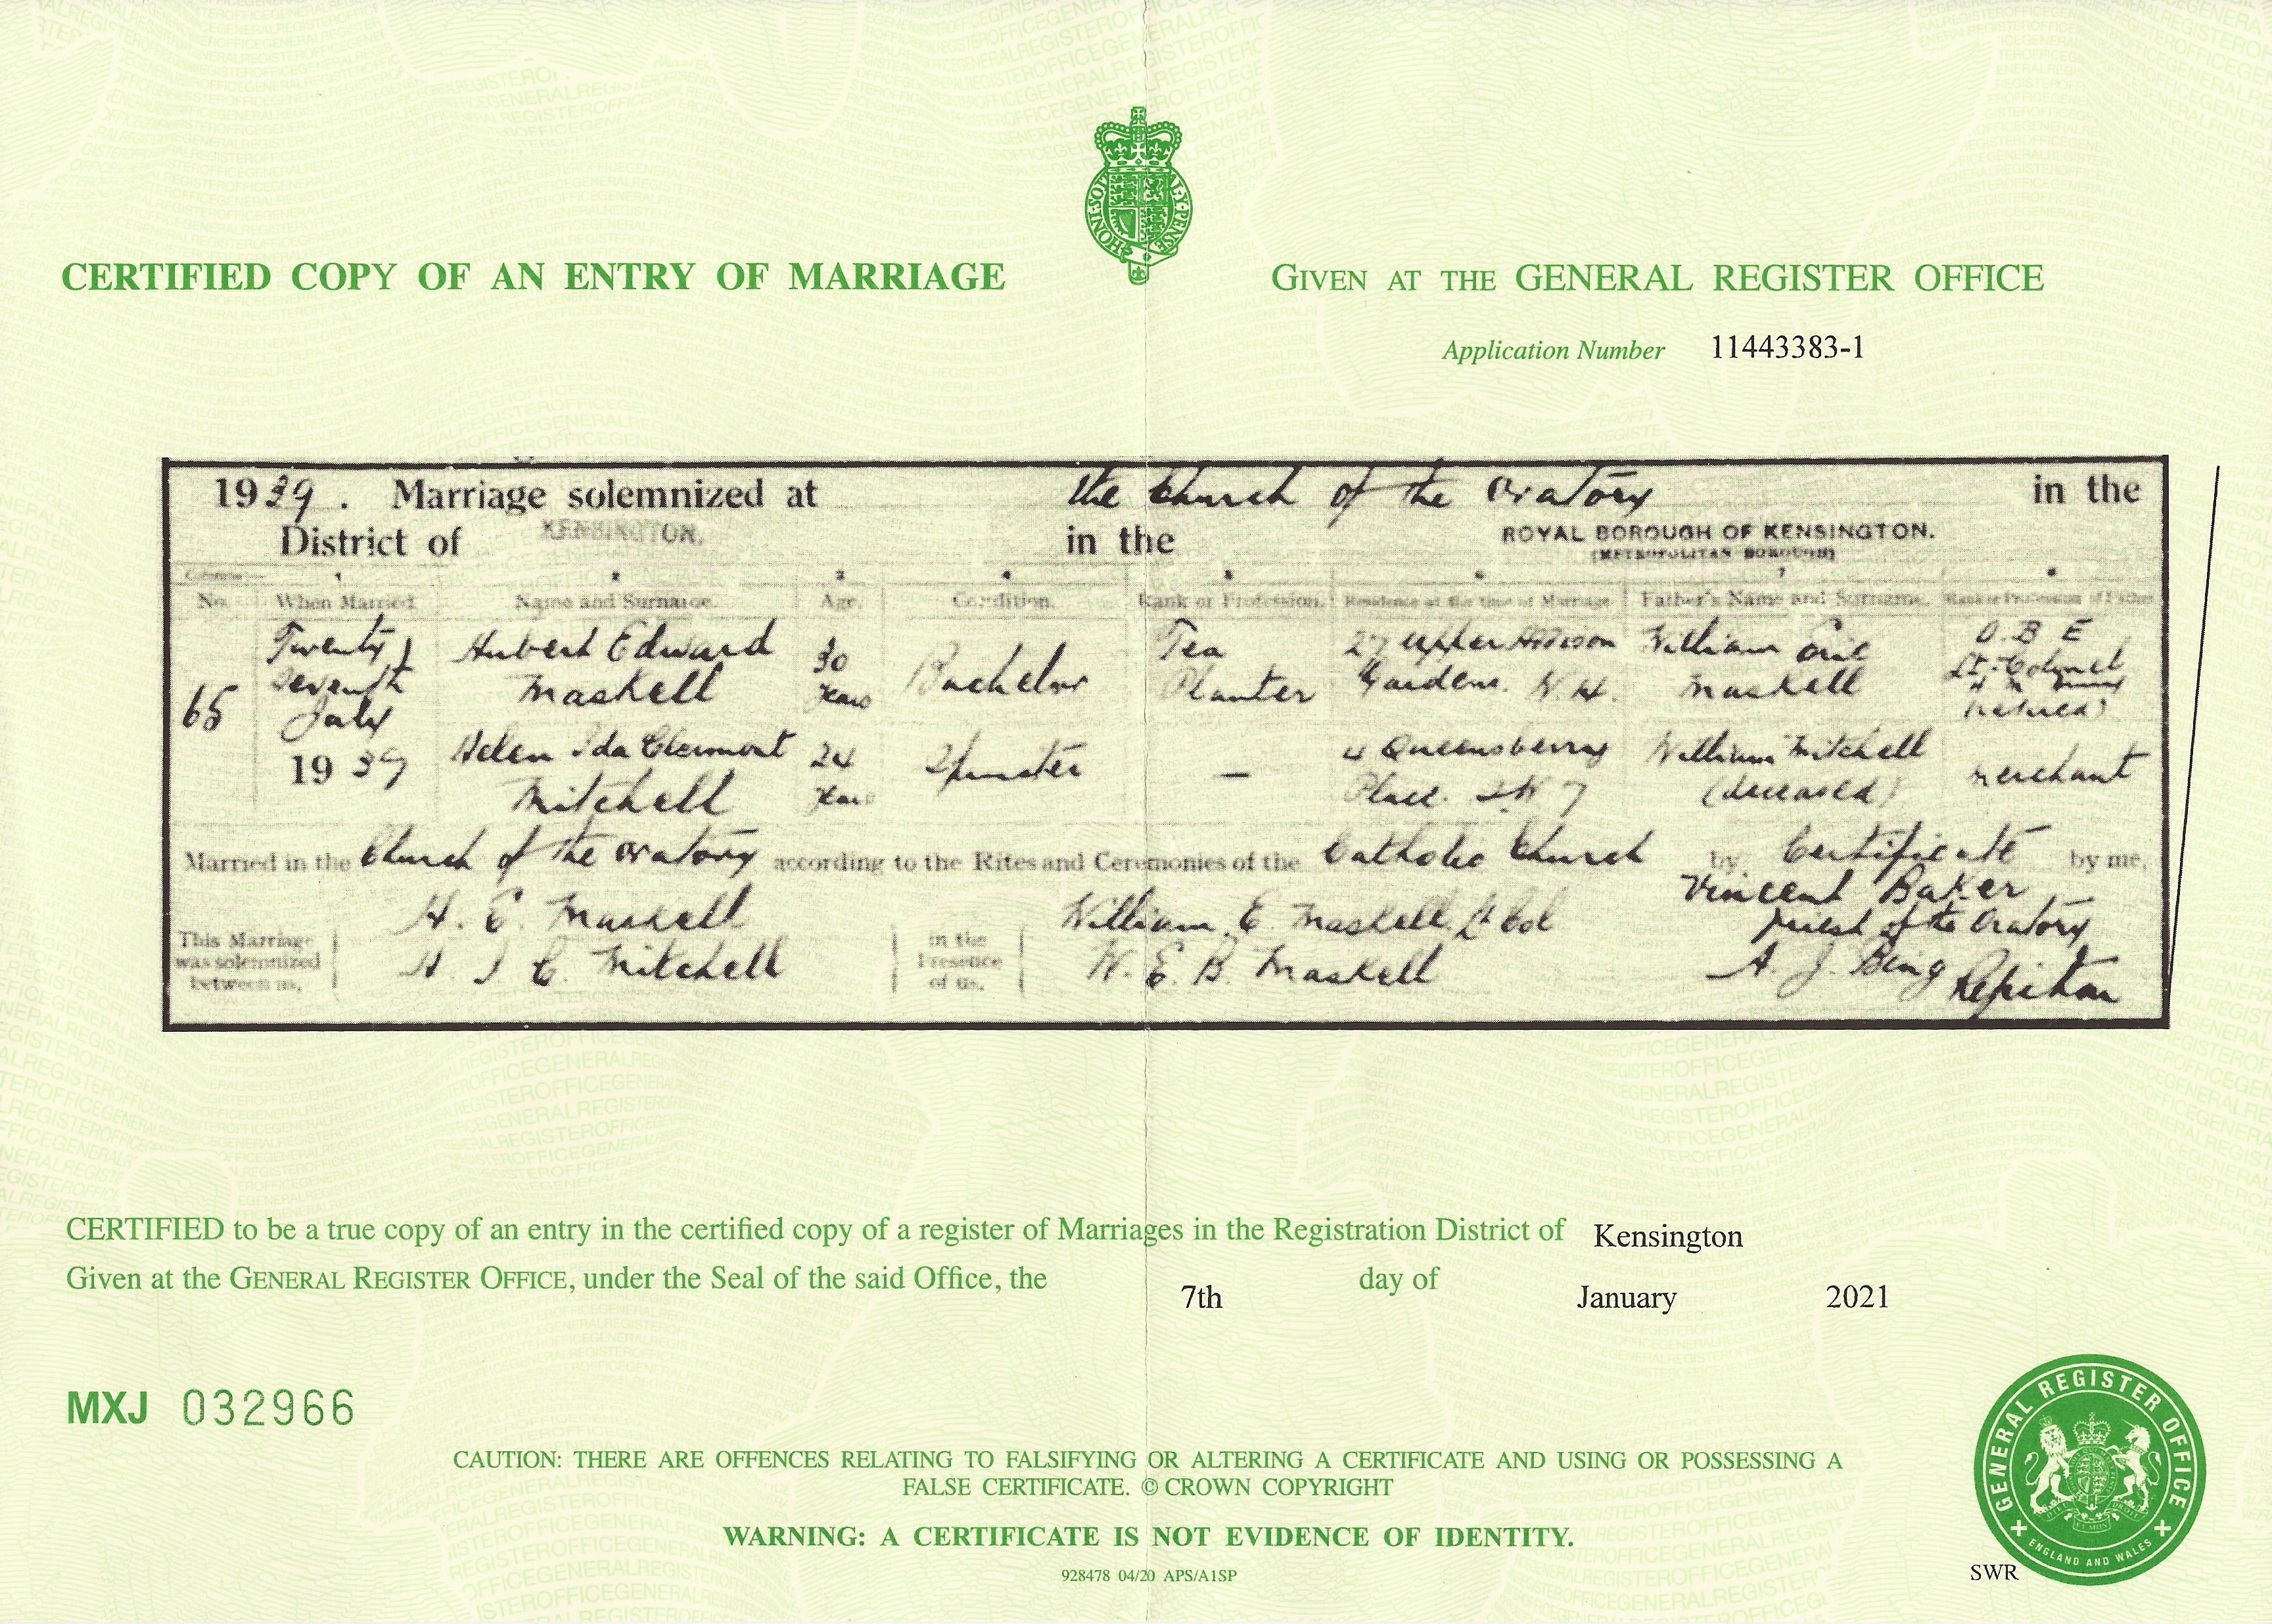 CERTIFIED COPY OF AN ENTRY OF MARRIAGE
GIVEN AT THE GENERAL REGISTER OFFICE
Application Number 11443383-1
1939. Marriage solemnized at the Church of the Oratory in the
District of KENSINGTON. in the ROYAL BOROUGH OF KENSINGTON.
(METROPOLITAN BOROUGH)
No. When Married. Name and Surname. Age. Condition. Rank or Profession. Residence at the time of Marriage Father's Name and Surname. Rank or Profession of Father
65
Twenty
seventh
July
1939
Hubert Edward
Maskell
30
years
Bachelor
Tea
Planter
27 Upper Addison
Gardens. W.14.
William Eric
Maskell
O.B E
Lt-Colonel
(retired)
Helen Ida Clermont
Mitchell
24
years
Spinster
—
4 Queensberry
Place. SW 7
William Mitchell
(deceased)
Merchant
Married in the Church of the Oratory according to the Rites and Ceremonies of the Catholic Church by Certificate by me,
This Marriage
was solemnized
between us,
H. E. Maskell
H I C. Mitchell
in the
Presence
of us,
William. E. Maskell. Lt Col
W. E. B. Maskell
Vincent Baker
Priest of the Oratory
A. J. Bing Registrar
CERTIFIED to be a true copy of an entry in the certified copy of a register of Marriages in the Registration District of Kensington
Given at the GENERAL REGISTER OFFICE, under the Seal of the said Office, the 7th day of January 2021
MXJ 032966
CAUTION: THERE ARE OFFENCES RELATING TO FALSIFYING OR ALTERING A CERTIFICATE AND USING OR POSSESSING A
FALSE CERTIFICATE. © CROWN COPYRIGHT
WARNING: A CERTIFICATE IS NOT EVIDENCE OF IDENTITY.
928478 04/20 APS/A1SP
SWR
GENERAL REGISTER OFFICE
ENGLAND AND WALES